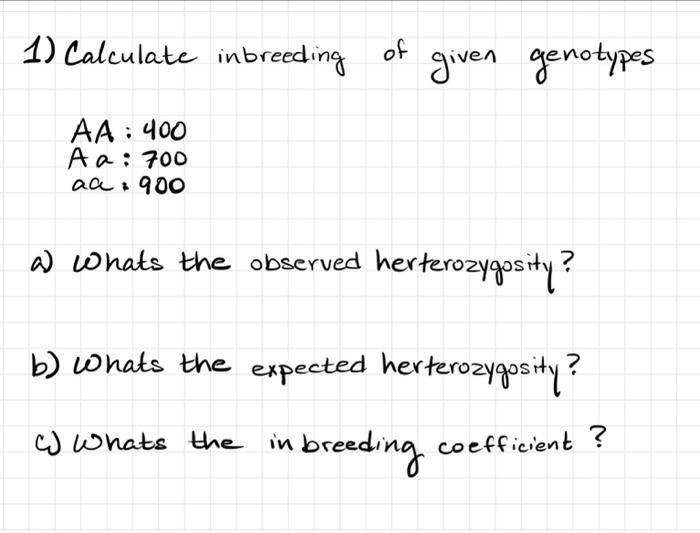 1) Calculate inbreeding of given genotypes
AA : 400
Aa : 700
aa : 900
a) Whats the observed herterozygosity?
b) Whats the expected herterozygosity?
c) Whats the inbreeding coefficient ?